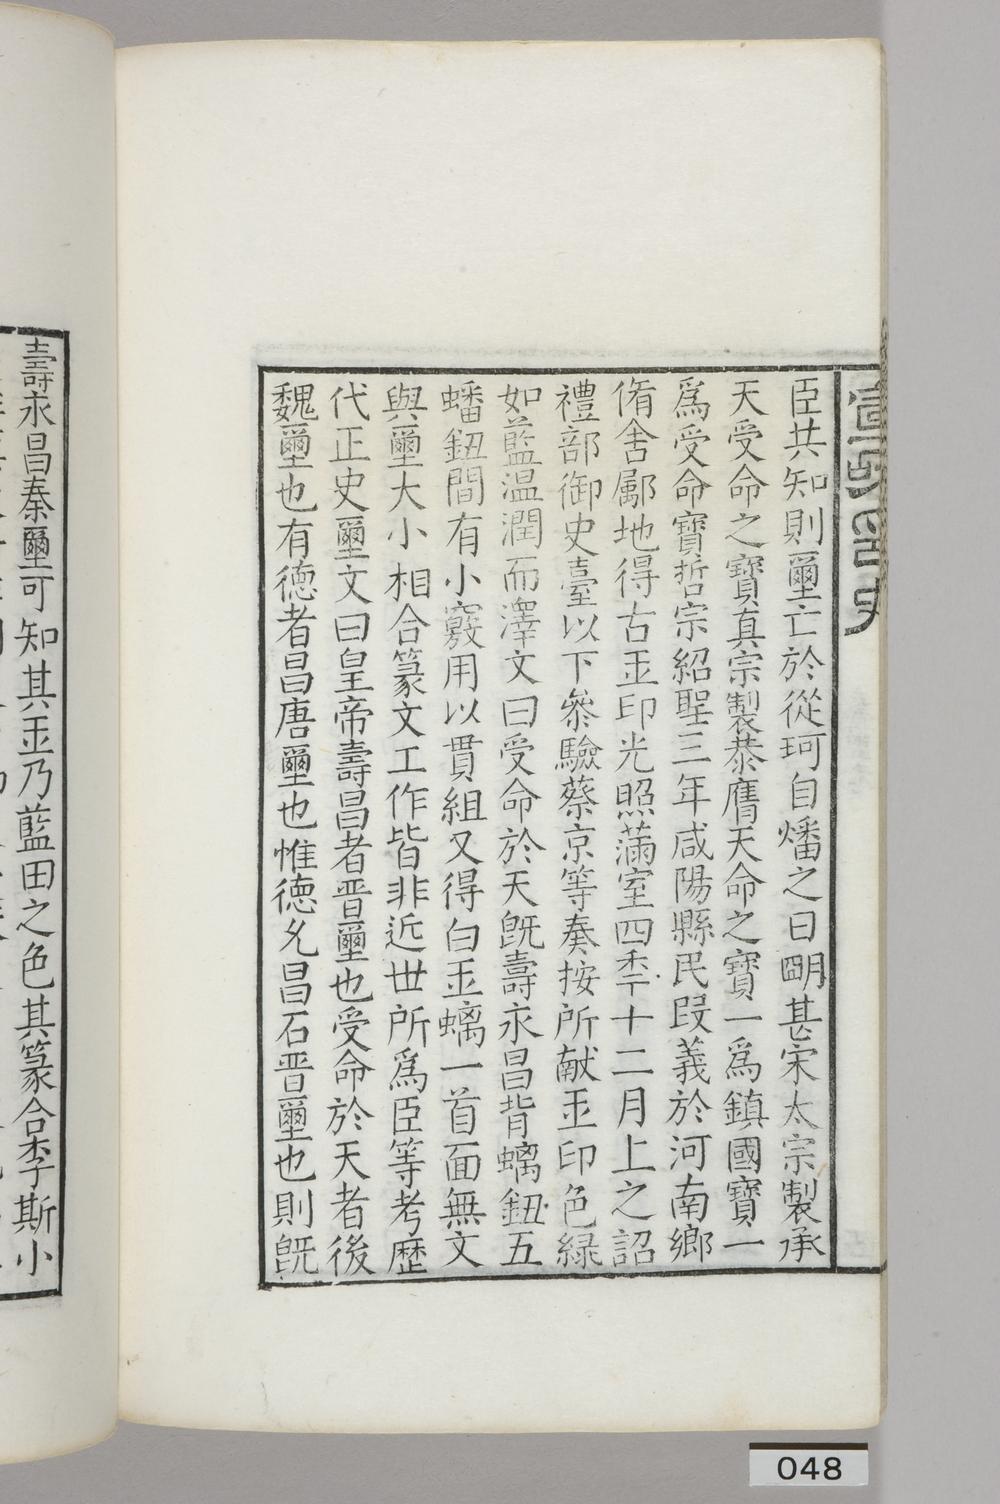 臣共知則璽亡於從珂自燔之日朙甚宋太宗製承
天受命之寶真宗製恭膺天命之寶一爲鎮國寶一
爲受命寶哲宗紹聖三年咸陽縣民段義於河南鄉
脩舍鄏地得古玉印光照滿室四秊十二月上之詔
禮部御史臺以下叅驗蔡京等奏按所献玉印色緑
如藍温潤而澤文曰受命於天旣壽永昌背螭鈕五
蟠鈕間有小竅用以貫組又得白玉螭一首面無文
與璽大小相合篆文工作皆非近世所爲臣等考歷
代正史璽文曰皇帝壽昌者晋璽也受命於天者後
魏璽也有徳者昌唐璽也惟徳允昌石晋璽也則旣
壽永昌秦璽可知其玉乃藍田之色其篆合李斯小
048